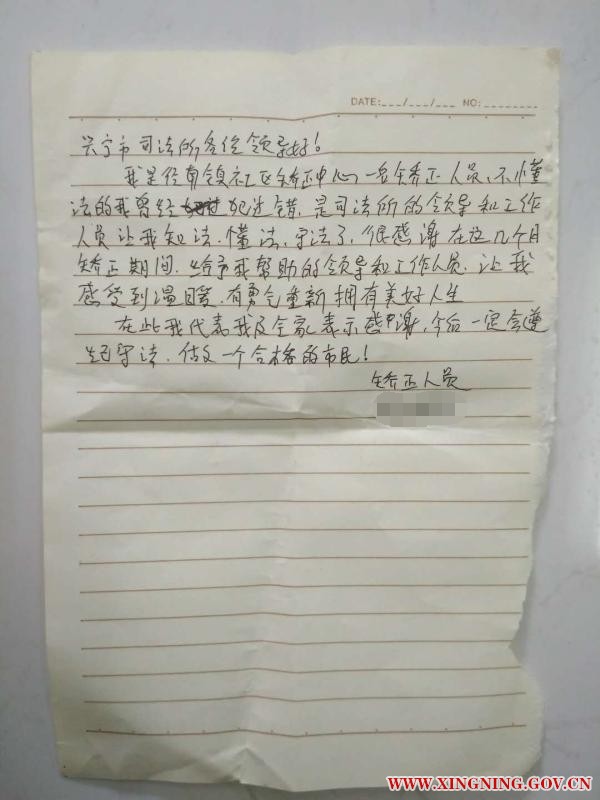 DATE:___/___/___ NO:________
兴宁市司法所各位领导好!
我是径南镇社区矫正中心一名矫正人员、不懂
法的我曾经犯过错、是司法所的领导和工作
人员让我知法、懂法、守法了、很感谢在这几个月
矫正期间、给予我帮助的领导和工作人员、让我
感受到温暖、有勇气重新拥有美好人生
在此我代表我及全家表示感谢、今后一定会遵
纪守法、做一个合格的市民!
矫正人员
WWW.XINGNING.GOV.CN